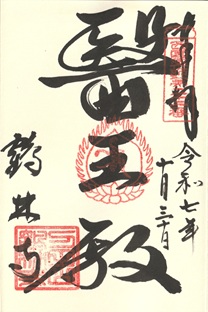 奉拝
令和七年
十月三十日
醫王殿
鶴林寺